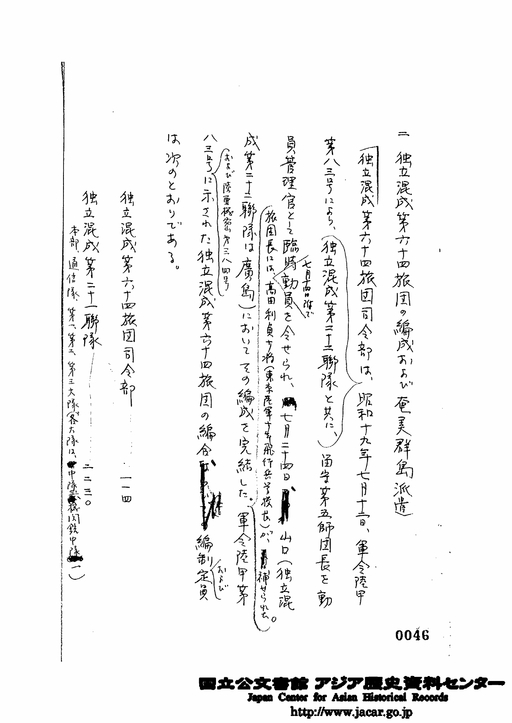 二 独立混成第六十四旅団の編成および奄美群島派遣
独立混成第六十四旅団司令部は、昭和十九年七月十二日、軍令陸甲
第八三号により、独立混成第二十二聯隊と共に、留守第五師団長を動
員管理官として臨時動員を令せられ、七月二十四日 山口(独立混
七月高田
旅団長には、高田利貞少将(東京陸軍少年飛行兵学校長)が、補せられた。
成第二十二聯隊は廣島)においてその編成を完結した。軍令陸甲第
および陸亜機密第三八四号
八三号に示された独立混成第六十四旅団の編合 編制定員
および
は次のとおりである。
独立混成第六十四旅団司令部 一一四
独立混成第二十一聯隊 三二三〇
本部、通信隊、第一、第二、第三大隊、各大隊は、 中隊 機関銃中隊 一)
0046
国立公文書館 アジア歴史資料センター
Japan Center for Asian Historical Records
http://www.jacar.go.jp